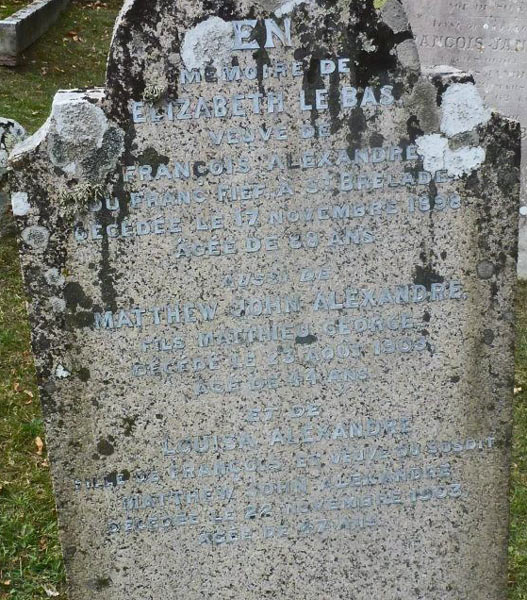 EN
MÉMOIRE DE
ELIZABETH LE BAS
VEUVE DE
FRANÇOIS ALEXANDRE
DU FRANC FIEF, À ST BRELADE
DÉCÉDÉE LE 17 NOVEMBRE 1898
AGÉE DE ANS
AUSSI DE
MATTHEW JOHN ALEXANDRE,
FILS MATTHIEU GEORGE
DÉCÉDÉ LE AOÛT
AGÉ DE ANS
ET DE
LOUISA ALEXANDRE
FILLE DE FRANÇOIS, ET VEUVE DU SUSDIT
MATTHEW JOHN ALEXANDRE
DÉCÉDÉE LE NOVEMBRE 1903
AGÉE DE ANS
FRANÇOIS JAN